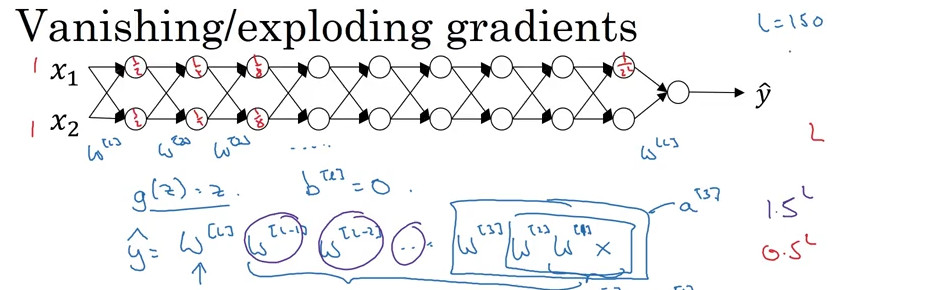 Vanishing/exploding gradients L=150
1 x₁ 1/2 1/4 1/8 1/2^L
ŷ
1 x₂ 1/2 1/4 1/8
L
w^[1] w^[2] w^[3] ..... w^[L]
g(z)=z. b^[l]=0.
a^[3]
1.5^L
ŷ = w^[L] w^[L-1] w^[L-2] ... w^[3] w^[2] w^[1] x
0.5^L